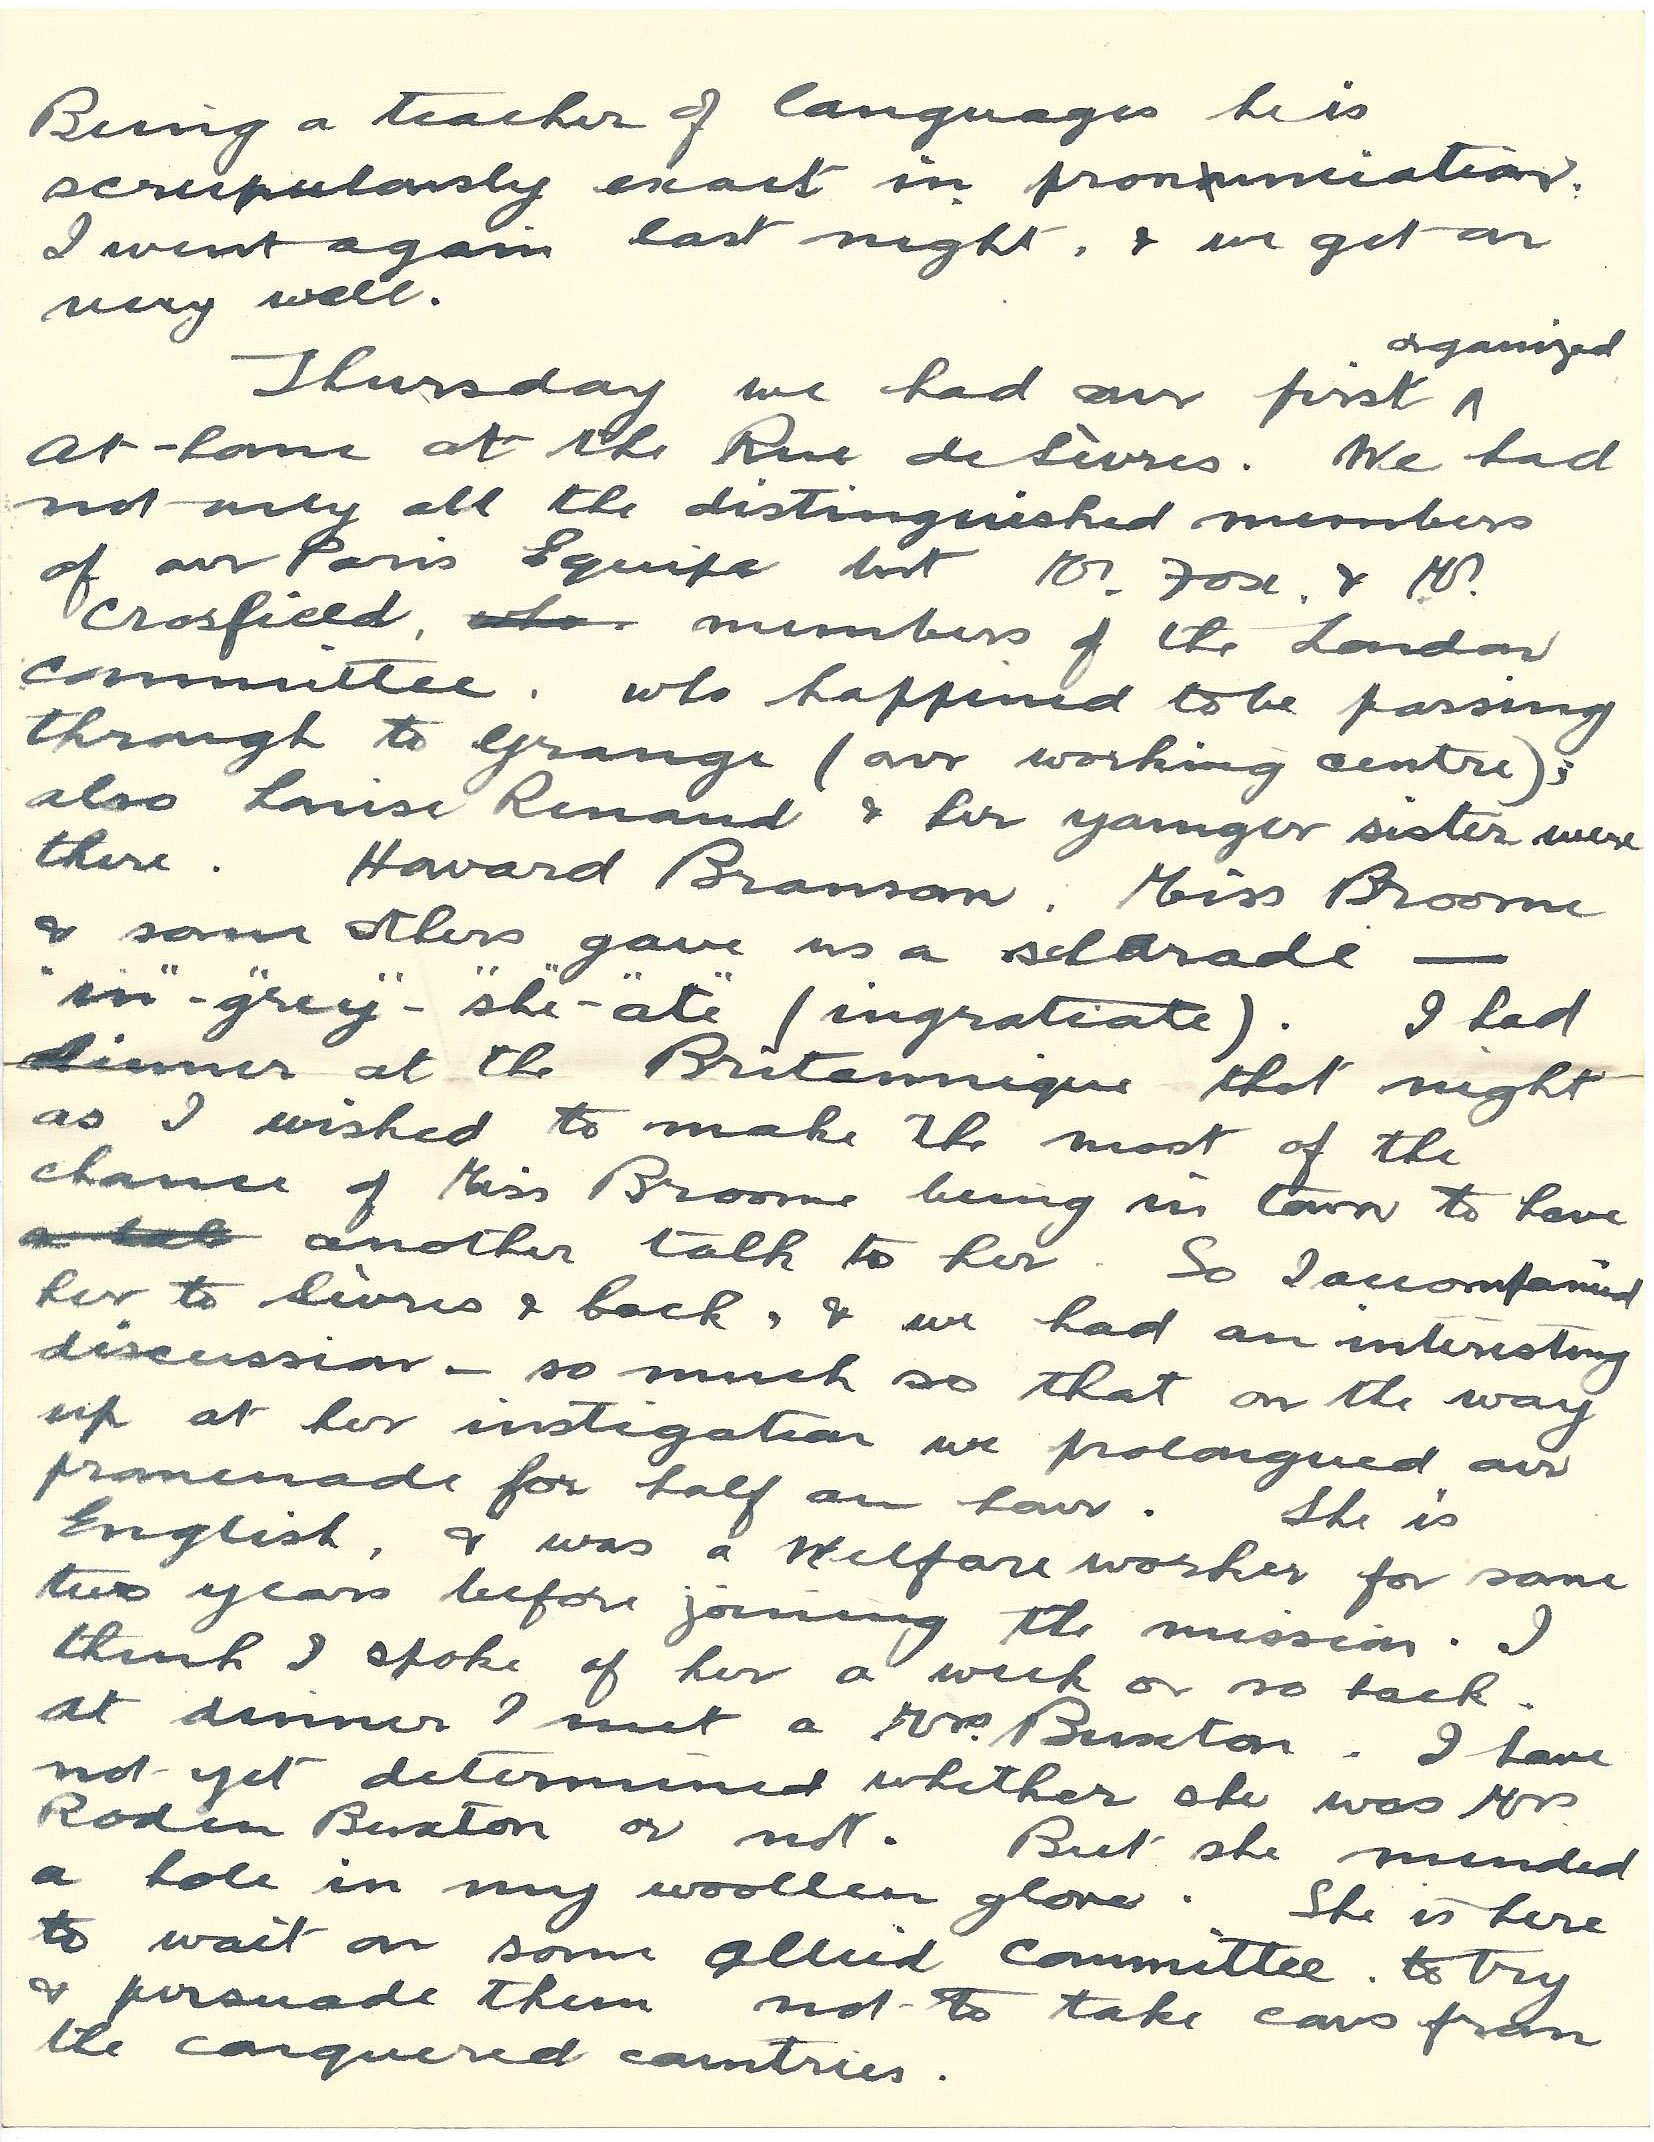 Being a teacher of languages he is
scrupulously exact in pronunciation.
I went again last night, & we get on
very well.
organized
Thursday we had our first ^
at-home at the Rue de Sèvres. We had
not only all the distinguished members
of our Paris Equipe but Mr. Fox, & Mr.
Crosfield, who members of the London
committee. who happened to be passing
through to Grange (our working centre);
also Louise Renaud & her younger sister were
there. Howard Branson, Miss Broome
& some others gave us a scharade —
"in"-"grey"-"she"-"ate" (ingratiate). I had
dinner at the Britannique that night
as I wished to make the most of the
chance of Miss Broome being in town to have
another talk to her. So I accompanied
her to Sèvres & back, & we had an interesting
discussion — so much so that on the way
up at her instigation we prolongued our
promenade for half an hour. She is
English, & was a Welfare worker for some
two years before joining the mission. I
think I spoke of her a week or so back.
at dinner I met a Mrs. Buxton. I have
not yet determined whether she was Mrs
Roden Buxton or not. But she mended
a hole in my woollen glove. She is here
to wait on some Allied Committee. to try
& persuade them not to take cows from
the conquered countries.